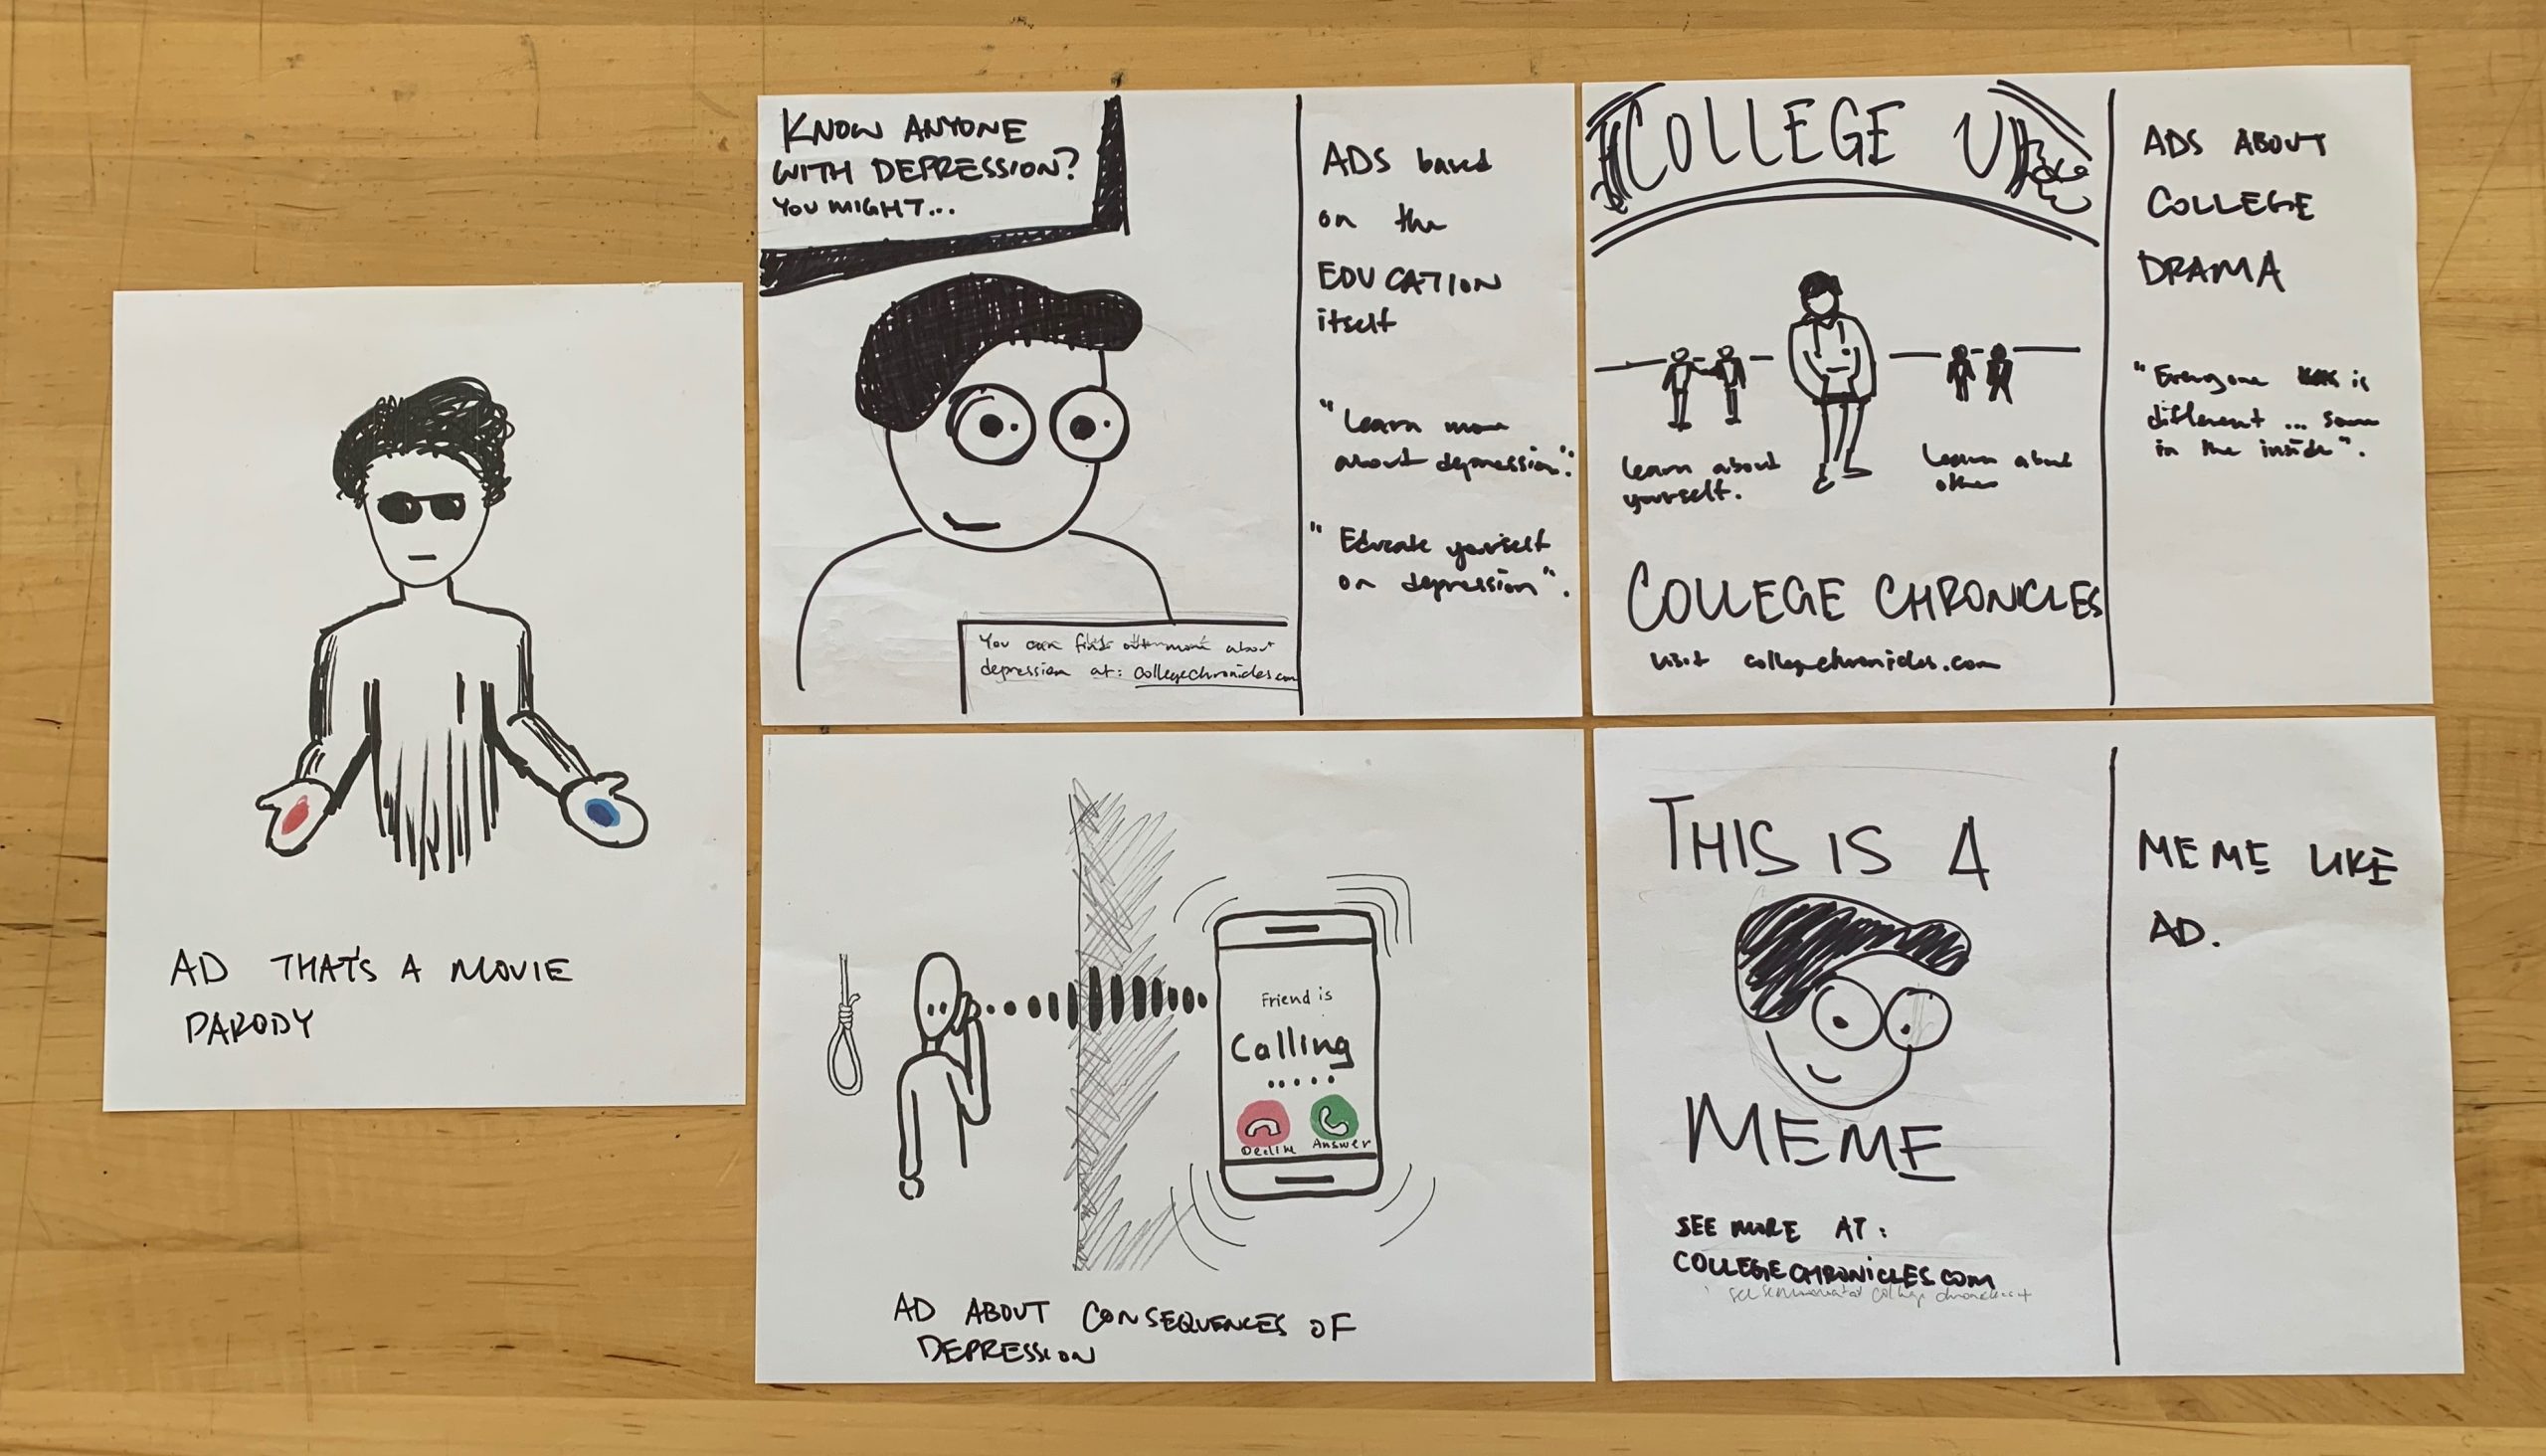 AD THAT'S A MOVIE
PARODY
KNOW ANYONE
WITH DEPRESSION?
YOU MIGHT...
You can find out more about
depression at: collegechronicles.com
ADS based
on the
EDUCATION
itself
"Learn more
about depression".
"Educate yourself
on depression".
COLLEGE U
learn about
yourself.
Learn about
others
COLLEGE CHRONICLES
visit collegechronicles.com
ADS ABOUT
COLLEGE
DRAMA
"Everyone is
different ... some
in the inside".
Friend is
Calling
.....
Decline Answer
AD ABOUT CONSEQUENCES OF
DEPRESSION
THIS IS A
MEME
SEE MORE AT:
COLLEGECHRONICLES.COM
MEME LIKE
AD.